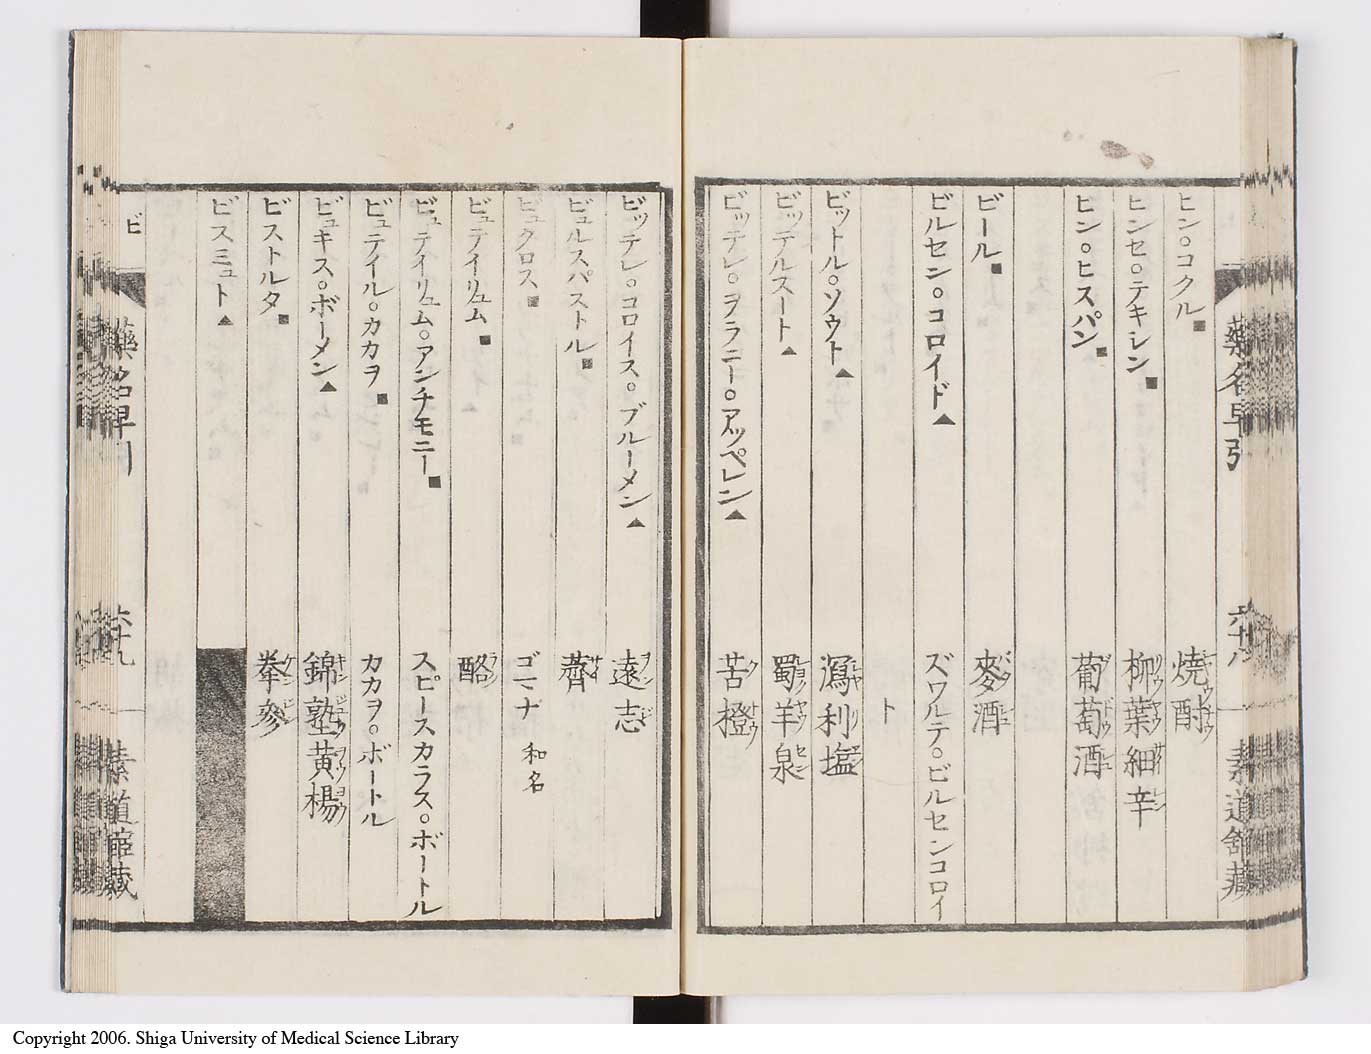 藥名早引
六十八
素道館藏
ヒン。コクル■
燒酎
ヒンセ。テキレン■
柳葉細辛
ヒン。ヒスパン■
葡萄酒
ビール■
麥酒
ビルセン。コロイド▲
ズワルテ。ビルセンコロイ
ト
ビットル。ソウト▲
瀉利塩
ビッテルスート▲
蜀羊泉
ビッテレ。ヲラニー。アッペレン▲
苦橙
ビッテレ。コロイス。ブルーメン▲
遠志
ビュルスパストル■
薺
ビュクロス■
ゴマナ 和名
ビュテイリュム■
酪
ビュテイリュム。アンチモニー■
スピースカラス。ボートル
ビュテイル。カカヲ■
カカヲ。ボートル
ビュキス。ボーメン▲
錦塾黄楊
ビストルタ■
拳參
ビスミュト▲
ビ
藥名早引
六十九
素道館藏
Copyright 2006. Shiga University of Medical Science Library